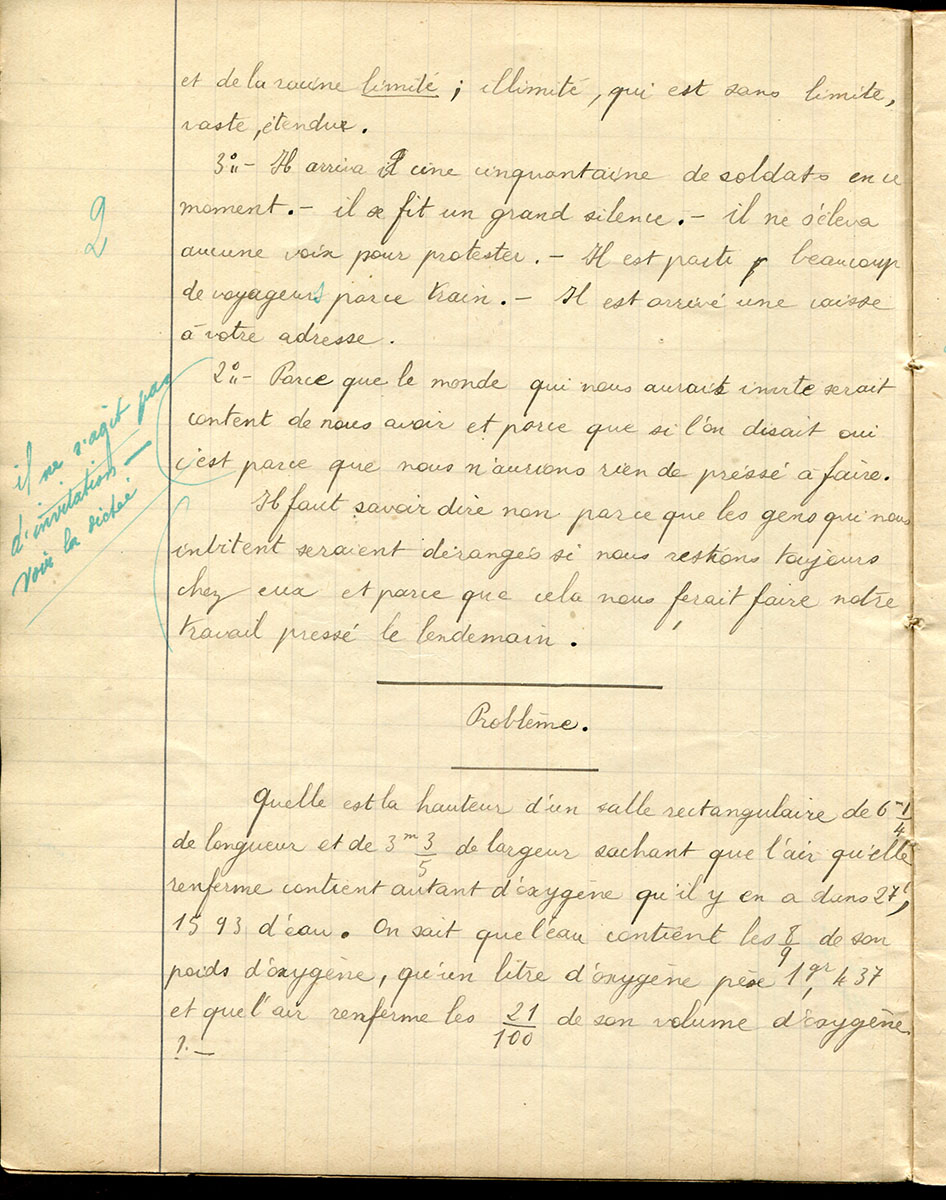 et de la racine limité ; illimité, qui est sans limite,
vaste, étendue.
3o.- Il arriva une cinquantaine de soldats en ce
moment. - il se fit un grand silence. - il ne s'éleva
aucune voix pour protester. - Il est parti beaucoup
de voyageurs par ce train. - Il est arrivé une caisse
à votre adresse.
2
2o.- Parce que le monde qui nous aurait invité serait
content de nous avoir et parce que si l'on disait oui
c'est parce que nous n'aurions rien de pressé à faire.
il ne s'agit pas
d'invitation -
voir la dictée
Il faut savoir dire non parce que les gens qui nous
invitent seraient dérangés si nous restions toujours
chez eux et parce que cela nous ferait faire notre
travail pressé le lendemain.
Problème.
Quelle est la hauteur d'un salle rectangulaire de 6m 1/4
de longueur et de 3m 3/5 de largeur sachant que l'air qu'elle
renferme contient autant d'oxygène qu'il y en a dans 27l,
1593 d'eau. On sait que l'eau contient les 8/9 de son
poids d'oxygène, qu'un litre d'oxygène pèse 1gr,437
et que l'air renferme les 21/100 de son volume d'oxygène
?.-